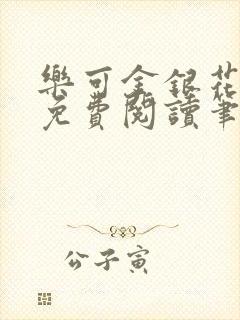 樂可金銀花
免費閱讀筆
公子寅